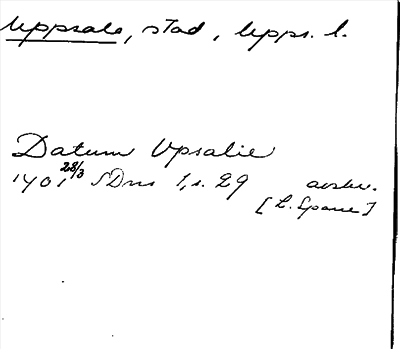 Uppsala, stad, Upps. l.
Datum Vpsalie
1401 28/3 SDns 1, s. 29 avskr.
[L. Sparre]